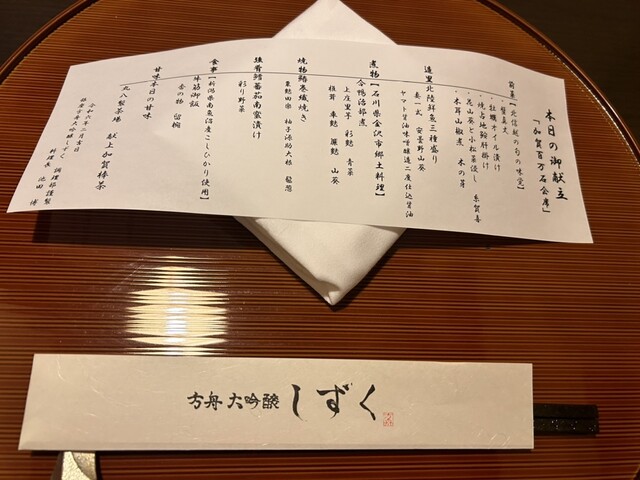 本日の御献立
「加賀百万石会席」
前菜【北信越の旬の味覚】
・蟹真丈
・牡蠣オイル漬け
・焼占地鮟肝掛け
・花山葵と小松菜浸し 糸賀喜
・木耳山椒煮 木の芽
造里 北陸鮮魚三種盛り
妻一式 安曇野山葵
ヤマト醤油味噌醸造二度仕込醤油
煮物【石川県金沢市郷土料理】
合鴨治部煮
上庄里子 彩麩 青菜
椎茸 車麩 簾麩 山葵
焼物 鰆巻繊焼き
粟麩田楽 柚子添
強肴 鱈蕃茄南蛮漬け
彩り野菜
食事【新潟県南魚沼産こしひかり使用】
牛筋御飯
香の物 留椀
甘味 本日の甘味
丸八製茶場 献上加賀棒茶
令和六年二月吉日
銀座方舟大吟醸しずく 調理部謹製
料理長 池田 博
方舟 大吟醸 しずく